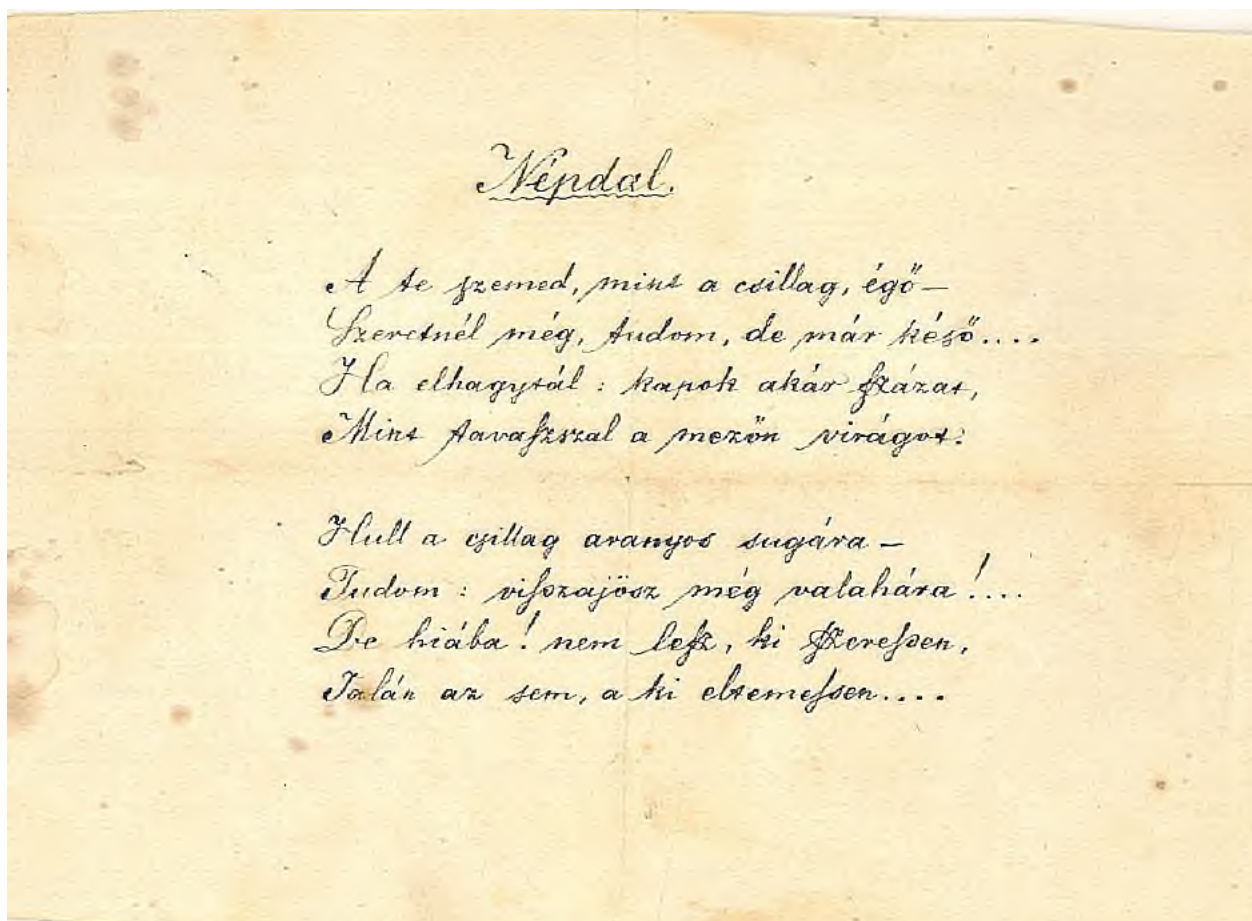 Népdal.
A te szemed, mint a csillag, égő—
Szeretnél még, tudom, de már késő....
Ha elhagytál: kapok akár százat,
Mint tavaszszal a mezőn virágot.
Hull a csillag aranyos sugára —
Tudom: visszajösz még valahára!....
De hiába! nem lesz, ki szeressen,
Talán az sem, a ki eltemessen....